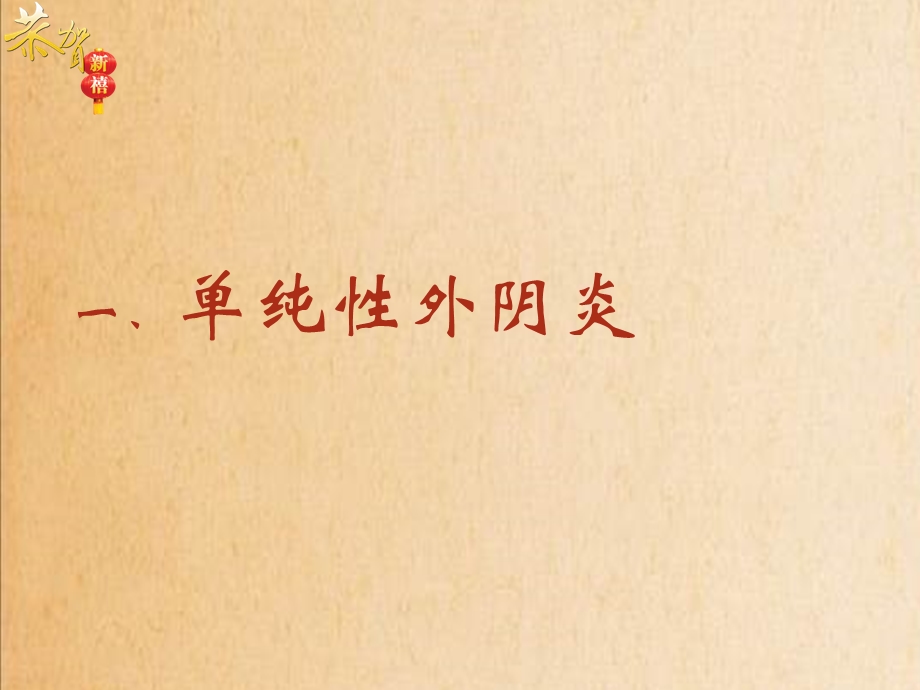 恭贺
新禧
一、单纯性外阴炎